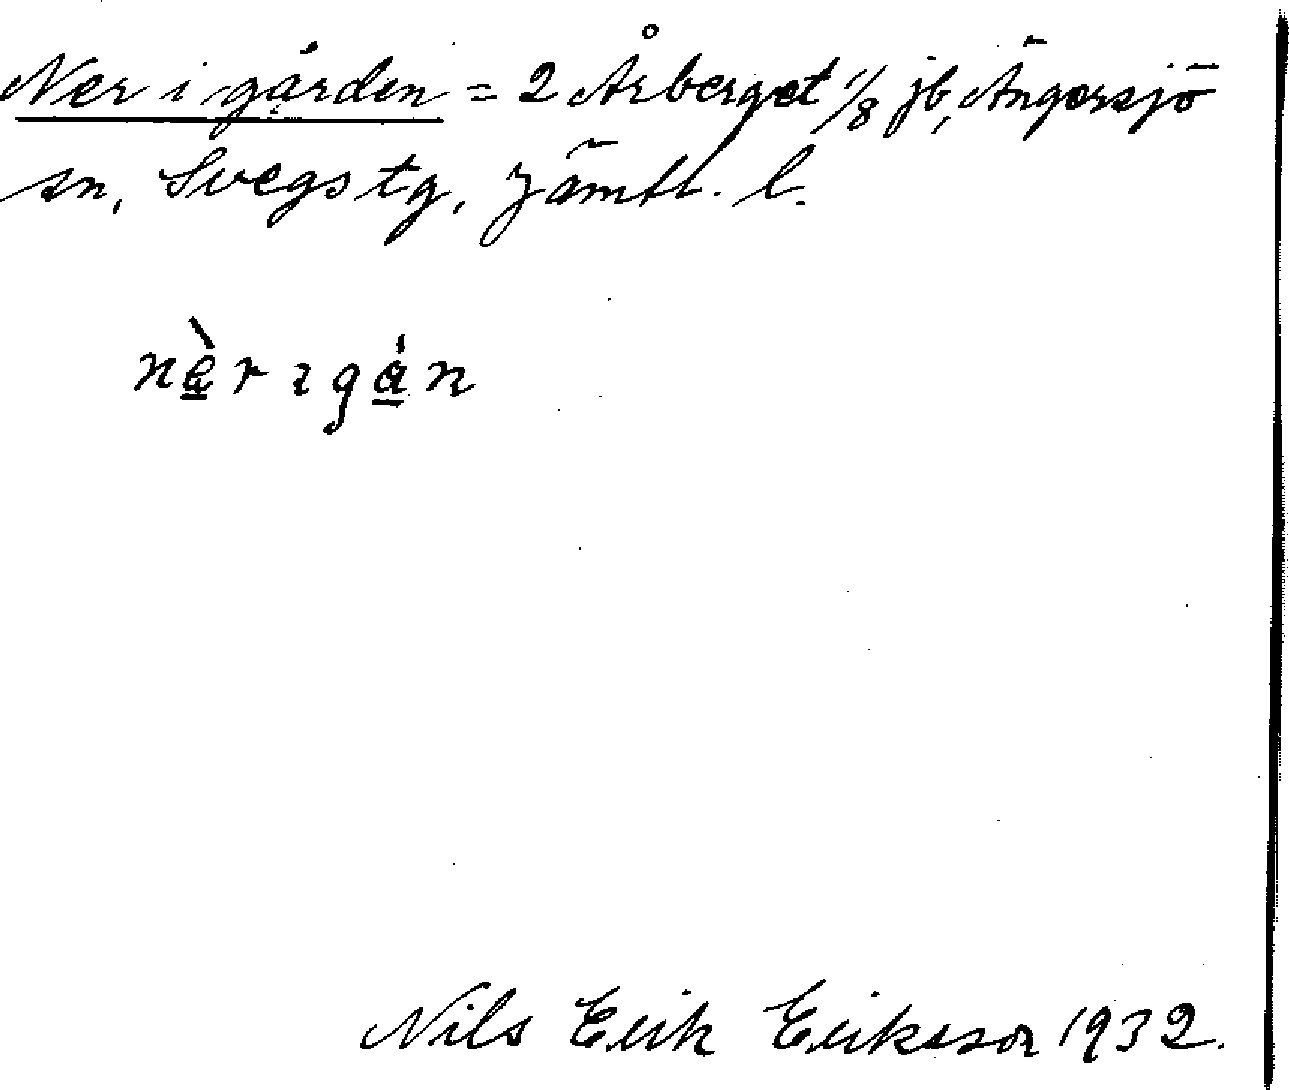 Ner i gården = 2 Årberget 1/8 jb, Ängersjö
sn, Svegs tg, Jämtl. l.
nè̱r ıgá̱n
Nils Erik Eriksson 1932.